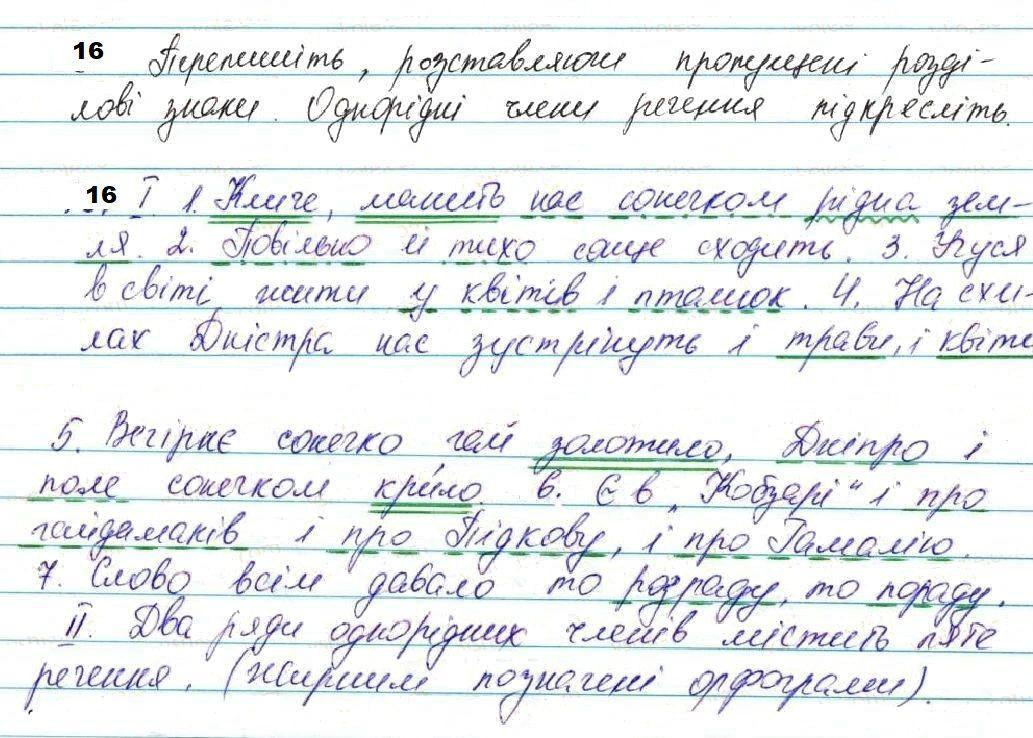 16 Перепишіть, розставляючи пропущені розді-
лові знаки. Однорідні члени речення підкресліть.
16 I. 1. Кличе, манить нас сонечком рідна зем-
ля. 2. Повільно й тихо сонце сходить. 3. Учуся
в світі жити у квітів і пташок. 4. На схи-
лах Дністра нас зустрінуть і трави, і квіти
5. Вечірнє сонечко гай золотило, Дніпро і
поле сонечком крило. 6. Є в „Кобзарі“ і про
гайдамаків і про Підкову, і про Гамалію.
7. Слово всім давало то розраду, то пораду.
II. Два ряди однорідних членів містить п'яте
речення. (Жирним позначені орфограми).